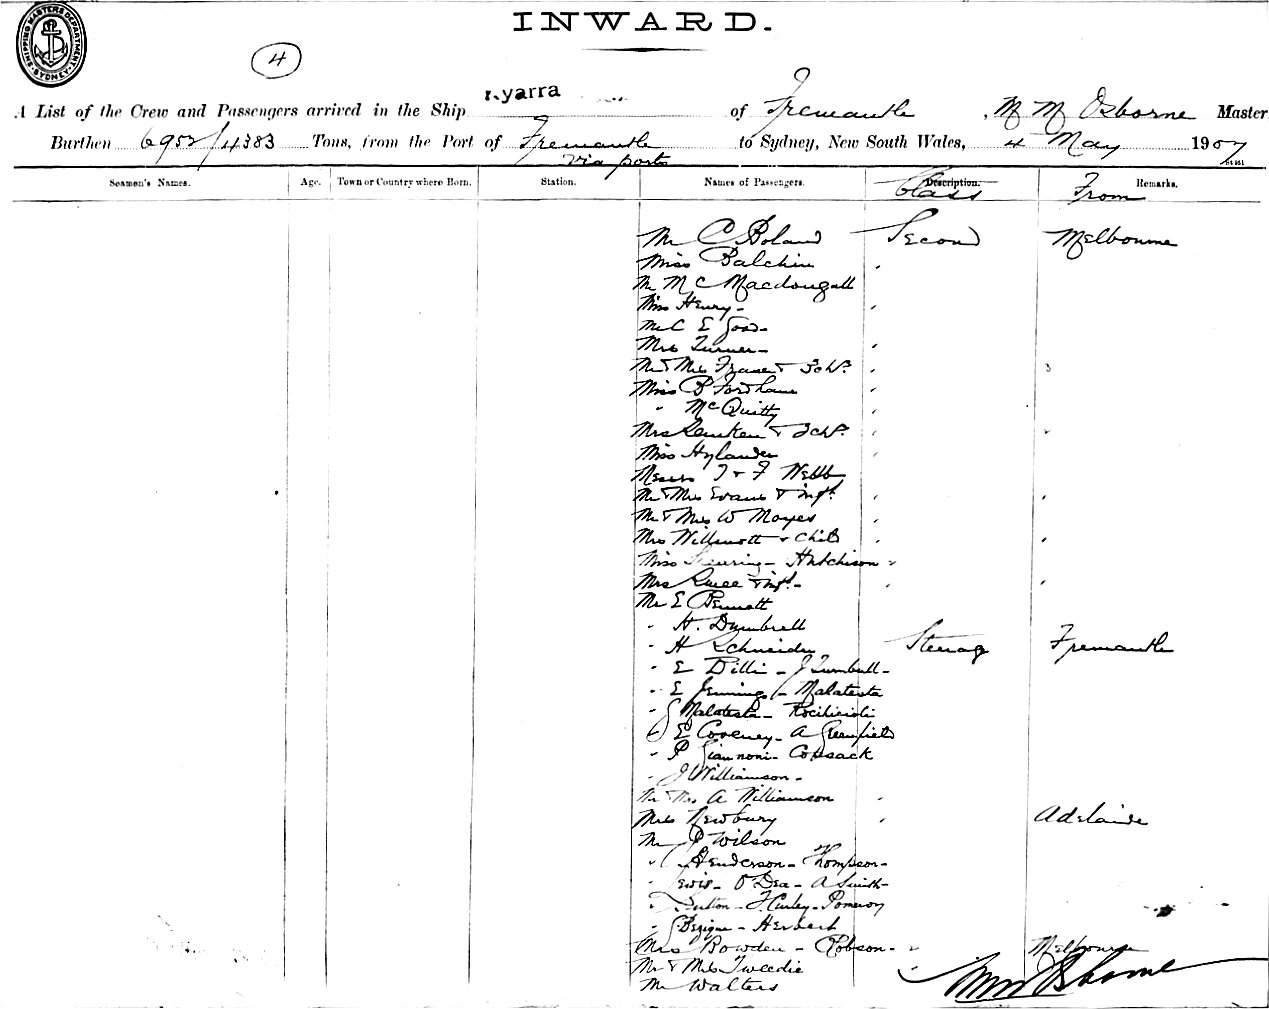 INWARD.
SHIPPING MASTERS DEPARTMENT. SYDNEY
4
A List of the Crew and Passengers arrived in the Ship Kyarra of Fremantle, M M Osborne Master
Burthen 6952/4383 Tons, from the Port of Fremantle to Sydney, New South Wales, 4 May 1907
via ports
Seamen's Names. Age. Town or Country where Born. Station. Names of Passengers. Description. Class From Remarks.
Mr C Boland Second Melbourne
Miss Balchin "
Mr M C Macdougall "
Miss Henry - "
Mr C E Good - "
Mrs Turner - "
Mr & Mrs Fraser & 3 ch. "
Miss B Fordham "
" McQuitty "
Mrs & ch. "
Miss Hylander "
Messrs & F Webb "
Mr & Mrs Evans & inft. "
Mr & Mrs W Moyes "
Mrs Willmott & Child "
Miss - Hutchison "
Mrs & inft. - "
Mr E Bennett
" H. Dumbrell
" H Schneider Steerage Fremantle
" E Dilli - J Turnbull -
" E Jennings - Malatesta
" G Malatesta -
" E Coveney - A Greenfield
" P Giannoni - Cossack
" J Williamson -
Mr & Mrs A Williamson "
Mrs Newbury " Adelaide
Mr P Wilson
" Henderson - Thompson -
" Lewis - O'Dea - A Smith -
" - Hurley - Pomeroy
" - Herbert
Mrs Bowden - Robson - " Melbourne
Mr & Mrs Tweedie "
Mr Walters
M M Osborne